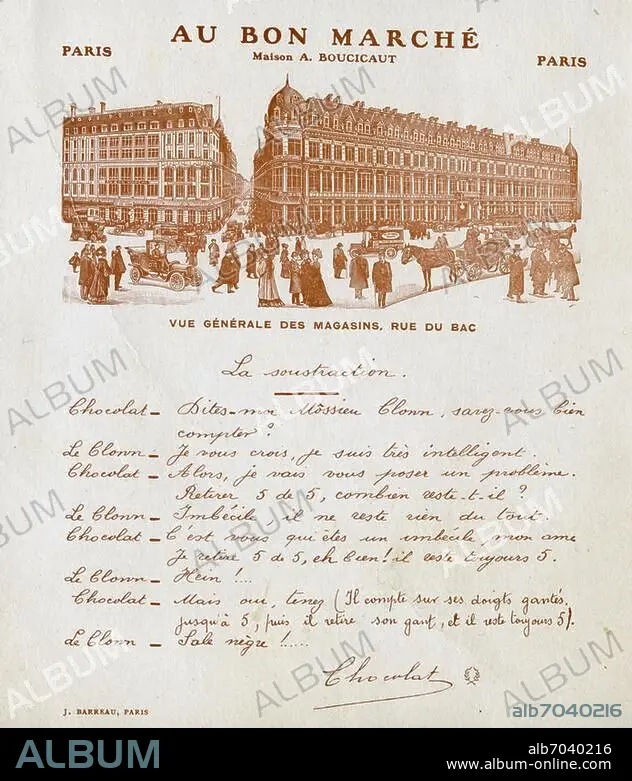 AU BON MARCHÉ
PARIS
Maison A. BOUCICAUT
PARIS
VUE GÉNÉRALE DES MAGASINS, RUE DU BAC
La soustraction.
Chocolat – Dites-moi Môssieu Clonn, savez-vous bien
compter ?
Le Clonn – Je vous crois, je suis très intelligent.
Chocolat – Alors, je vais vous poser un problème.
Retirer 5 de 5, combien reste-t-il ?
Le Clonn – Imbécile il ne reste rien du tout.
Chocolat – C'est vous qui êtes un imbécile mon ame
Je retire 5 de 5, eh bien ! il reste toujours 5.
Le Clonn – Hein !...
Chocolat – Mais oui, tenez (Il compte sur ses doigts gantés,
jusqu'à 5, puis il retire son gant, et il reste toujours 5).
Le Clonn – Sale nègre !.....
Chocolat
J. BARREAU, PARIS
ALBUM
ALBUM
ALBUM
ALBUM
ALBUM
ALBUM
ALBUM
ALBUM
ALBUM
ALBUM
ALBUM
ALBUM
alb7040216
ALBUM
alb7040216
www.album-online.com